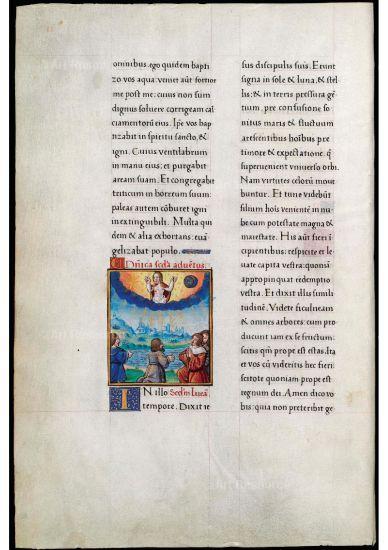 omnibus. ego quidem bapti
zo vos aqua: veniet aūt fortior
me post me: cuius non sum
dignus soluere corrigeam cal
ciamentorū eius. Ip̄e vos bap
tizabit in spiritu sancto, &
igni. Cuius ventilabrum
in manu eius: et purgabit
aream suam. Et congregabit
triticum in horreum suum:
paleas autem cōburet igni
inextinguibili. Multa qui
dem & alia exhortans: euā
gelizabat populo.
Dn̄ica secd̄a aduētus.
IN illo Secdm̄ Lucā.
tempore. Dixit ie
sus discipulis suis. Erunt
signa in sole & luna, & stel
lis: & in terris pressura gē
tium, pre confusione so
nitus maris & fluctuum
arescentibus hoībus pre
timore & expectatione q̄
superuenient vniuerso orbi.
Nam virtutes celorū moue
buntur. Et tunc videbūt
filium hoīs venientē in nu
be cum potestate magna &
maiestate. His aūt fieri i
cipientibus: respicite et le
uate capita vestra: quoniā
appropinquat redemptio
vestra. Et dixit illis simili
tudinē. Videte ficulneam
& omnes arbores: cum pro
ducunt iam ex se fructum:
scitis qm̄ prope est estas. Ita
et vos cū videritis hec fieri:
scitote quoniam prope est
regnum dei. Amen dico vo
bis: quia non preteribit ge